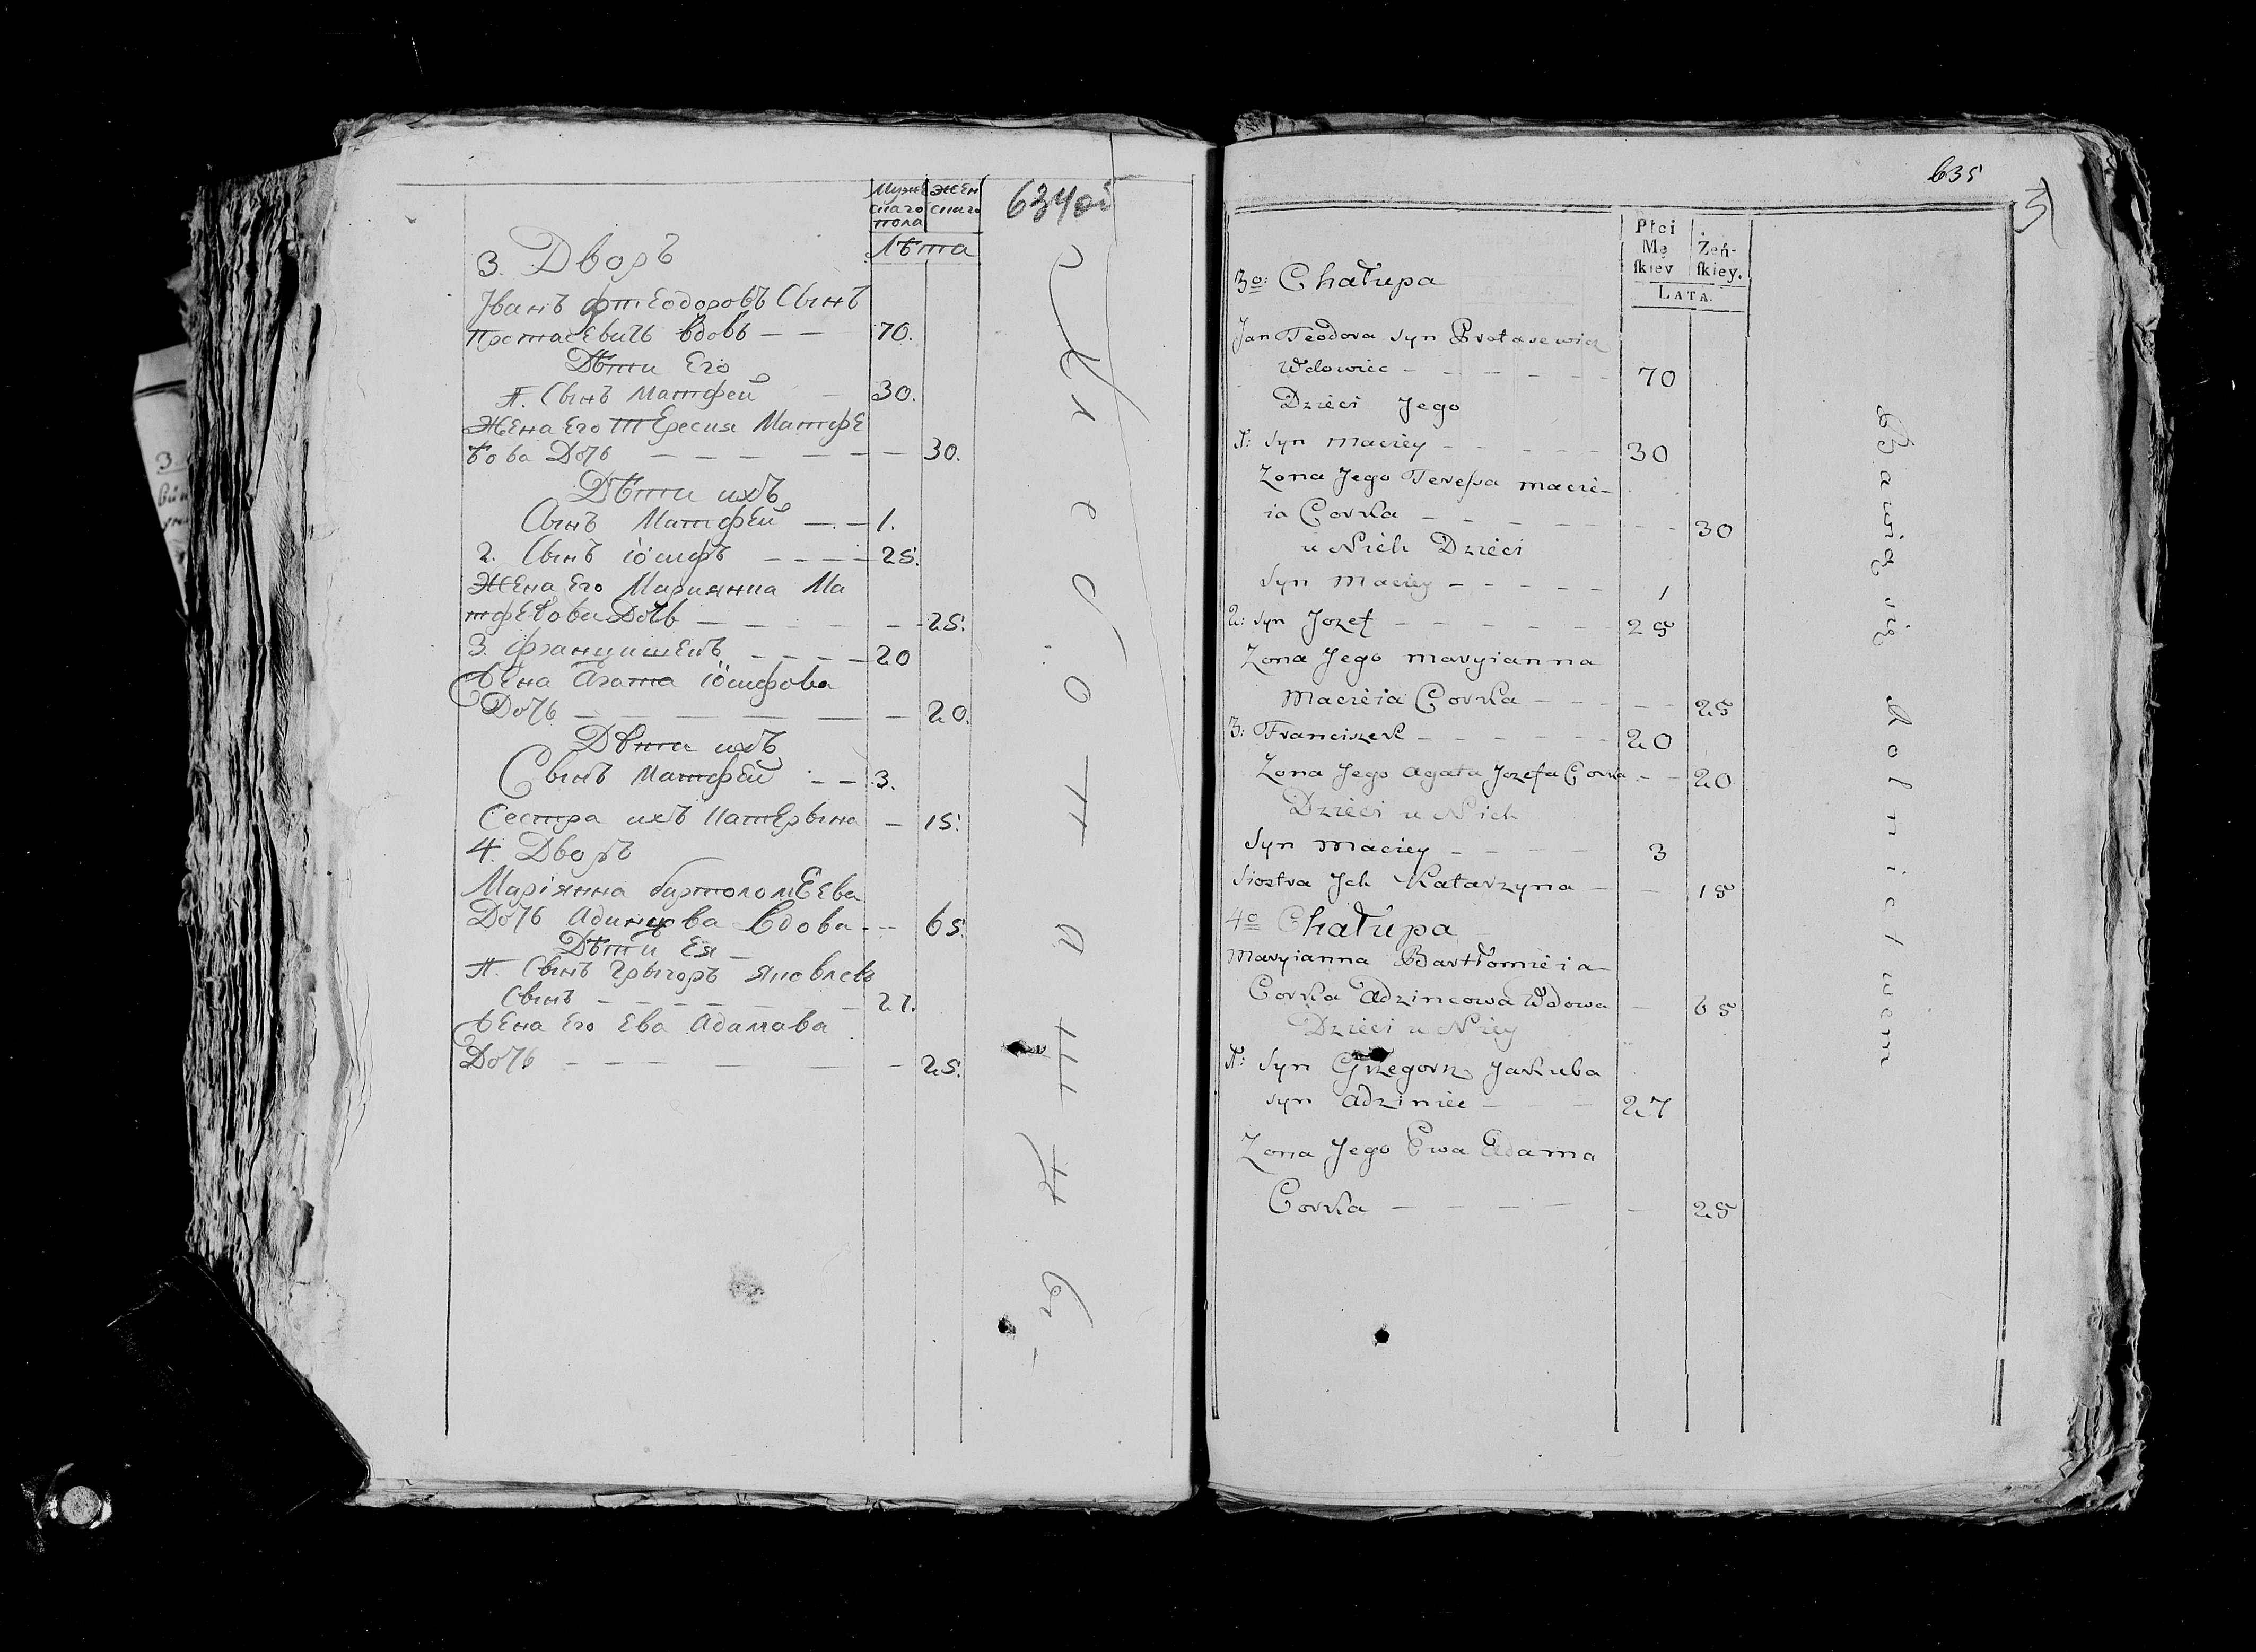 Мужескаго пола
Женскаго
634 об
Лѣта
3. Дворъ
Іванъ Фтеодоровъ Сынъ
Протасевичъ вдовъ — — 70.
Дѣти Его
А. Сынъ Матфей — 30.
Жена Его Тересия Матфе
ѣова Дочь — — — — — — 30.
Дѣти ихъ
Сынъ Матфей — . — 1.
2. Сынъ іосифъ — — — — 25.
Жена Его Марианна Ма
тфеѣова Дочь — — — — — — 25.
3. Францишекъ — — — — 20
Жена Агата іосифова
Дочь — — — — — — 20.
Дѣти ихъ
Сынъ Матфей — — 3.
Сестра ихъ Катерына — 15.
4. Дворъ
Маріянна бартоломѣева
Дочь Адинцова Вдова — — 65.
Дѣти Ея —
А. Сынъ Грыгоръ Яковлевъ
Сынъ — — — — — — — 27.
Жена Его Ева Адамава
Дочь — — — — — — 25.
635
Płci Męſkiey
Żeńſkiey.
LATA.
3o: Chałupa
Jan Teodora syn Protasewicz
Wdowiec — — — — — — 70
Dzieci Jego
A: syn Maciey — — — — — 30
Zona Jego Teressa Macie-
ia Corka — — — — — — 30
u Nich Dzieci
syn Maciey — — — — — 1
2: syn Jozef — — — — — — 25
Zona Jego Maryianna
Macieia Corka — — — — — 25
3: Franciszek — — — — — — 20
Zona Jego Agata Jozefa Corka — — 20
Dzieci u Nich
syn Maciey — — — — 3
siostra Jch Katarzyna — — 15
4o Chałupa
Maryianna Bartłomieia
Corka Adzincowa Wdowa — 65
Dzieci u Niey
A: syn Grzegorz Jakuba
syn Adziniec — — — 27
Zona Jego Ewa Adama
Corka — — — — — 25
Bawią się Rolnictwem